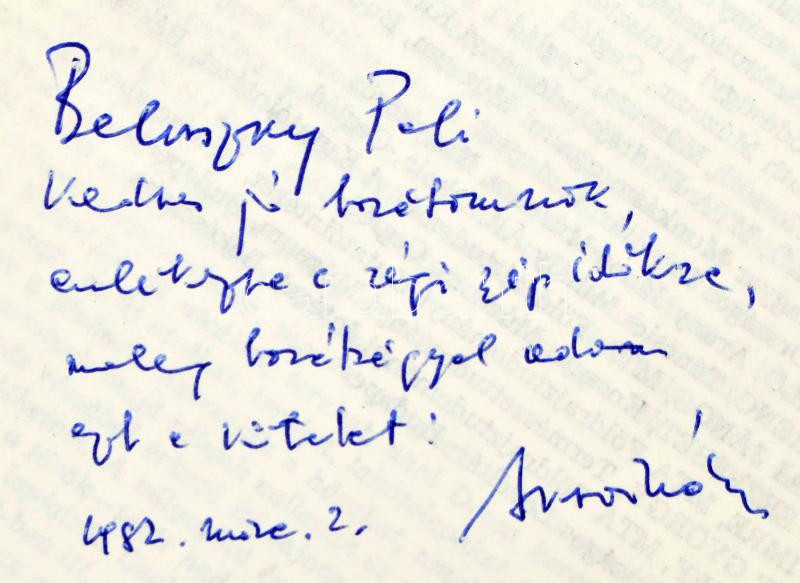 Beluszky Pali
kedves jó barátomnak,
emlékezve a régi szép időkre,
meleg barátsággal adom
ezt a kötetet:
1982. márc. 2.